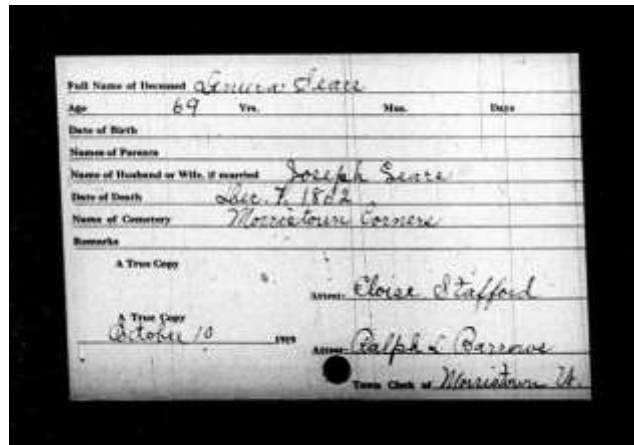 Full Name of Deceased Lemira Sears
Age 69 Yrs. Mos. Days
Date of Birth
Names of Parents
Name of Husband or Wife, if married Joseph Sears
Date of Death Dec. 7, 1862
Name of Cemetery Morristown Corners
Remarks
A True Copy
Attest- Eloise Stafford
A True Copy
October 10 1919
Attest- Ralph L Barrows
Town Clerk of Morristown Vt.